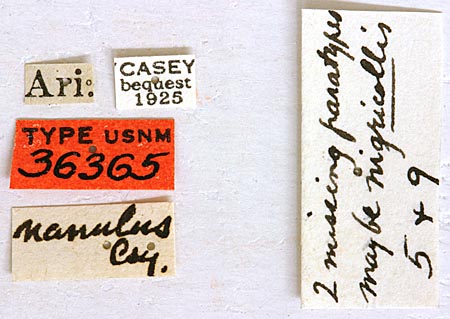 Ari:
CASEY
bequest
1925
TYPE USNM
36365
nanulus
Csy.
2 missing paratypes
maybe nigricollis
5 + 9